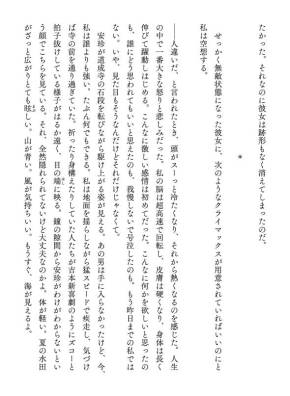 たかった。それなのに彼女は跡形もなく消えてしまったのだ。
*
せっかく無敵状態になった彼女に、次のようなクライマックスが用意されていればいいのにと
私は空想する。
――人違いだ、と言われたとき、頭がスーッと冷たくなり、それから熱くなるのを感じた。人生
の中で一番大きな怒りと悲しみだった。私の脳は超高速で回転し、皮膚は硬くなり、身体は長く
伸びて躍動しはじめる。こんなに激しい感情は初めてだった。こんなに何かを欲しいと思ったの
も、誰にどう思われてもいいと思えたのも、我慢しないで号泣したのも。もう昨日までの私では
ない。いや、見た目もそうなんだけどそれだけじゃなくて。
安珍が道成寺の石段を転びながら駆け上がる姿が見える。あの男は手に入らなかったけど、今、
私は誰よりも強い。たぶん何でもできる。私は地面を揺らしながら猛スピードで疾走し、気づけ
ば寺の前を通り過ぎていた。祈ったり身構えたりしていた人たちが吉本新喜劇のようにズコーと
拍子抜けしている様子がはるか遠く、目の端に映る。鐘の隙間から安珍がわけがわからないとい
う顔でこちらを見ている。それ、全然隠れられてないけど大丈夫なのかよ。体が軽い。夏の水田
がざっと広がりとても眩しい。山が青い。風が気持ちいい。もうすぐ、海が見えるよ。